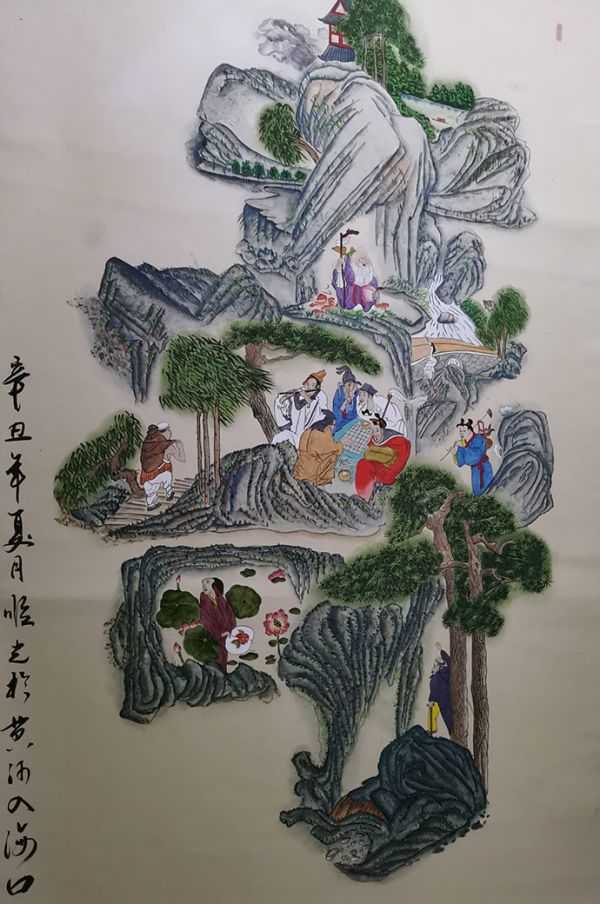 辛丑年夏月顺光于黄河入海口